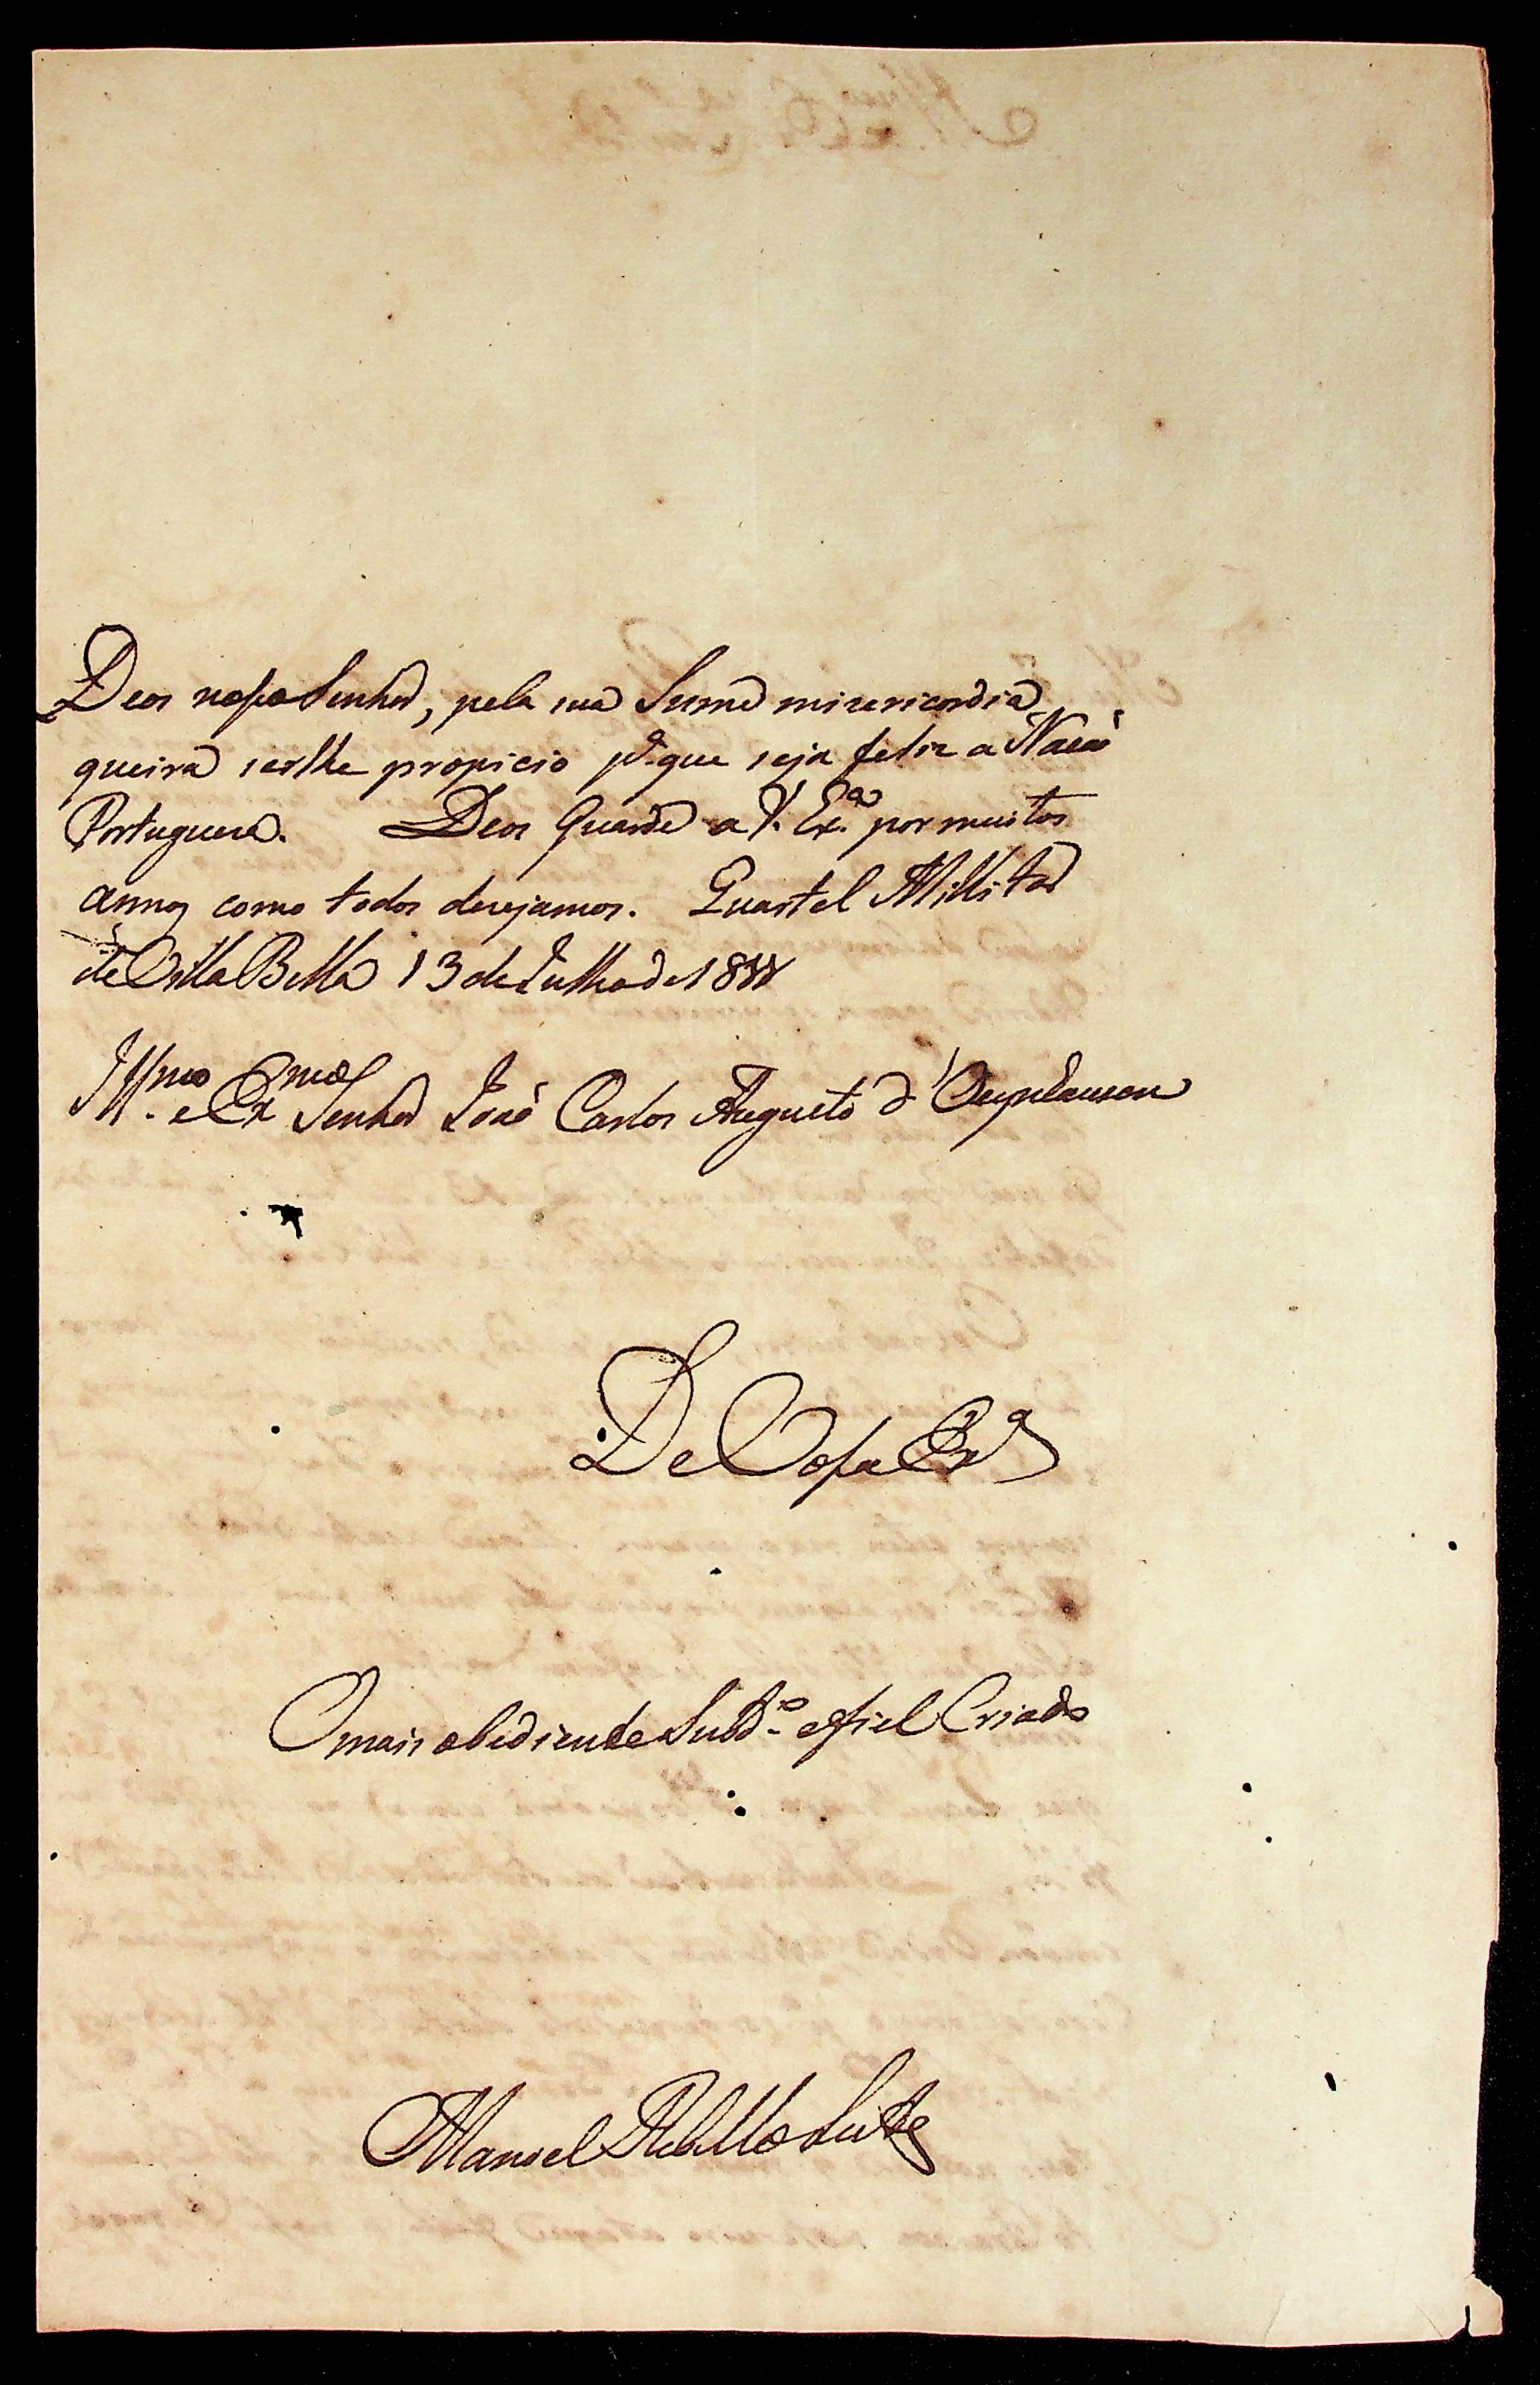 Deos nosso Senhor, pela sua Suma misericordia
queira serlhe propicio pª. que seja feliz a Nacaõ
Portugueza. Deos Guarde a V. Exª. por muitos
annos como todos desejamos. Quartel Millitar
de Villa Bella 13 de Julho de 18
Illmo. e Exmo Senhor Joaõ Carlos Augusto d'Oeynhausen
De Vossa Exª
O mais obediente Subdº. e fiel Criado
Manoel Rebello Leite